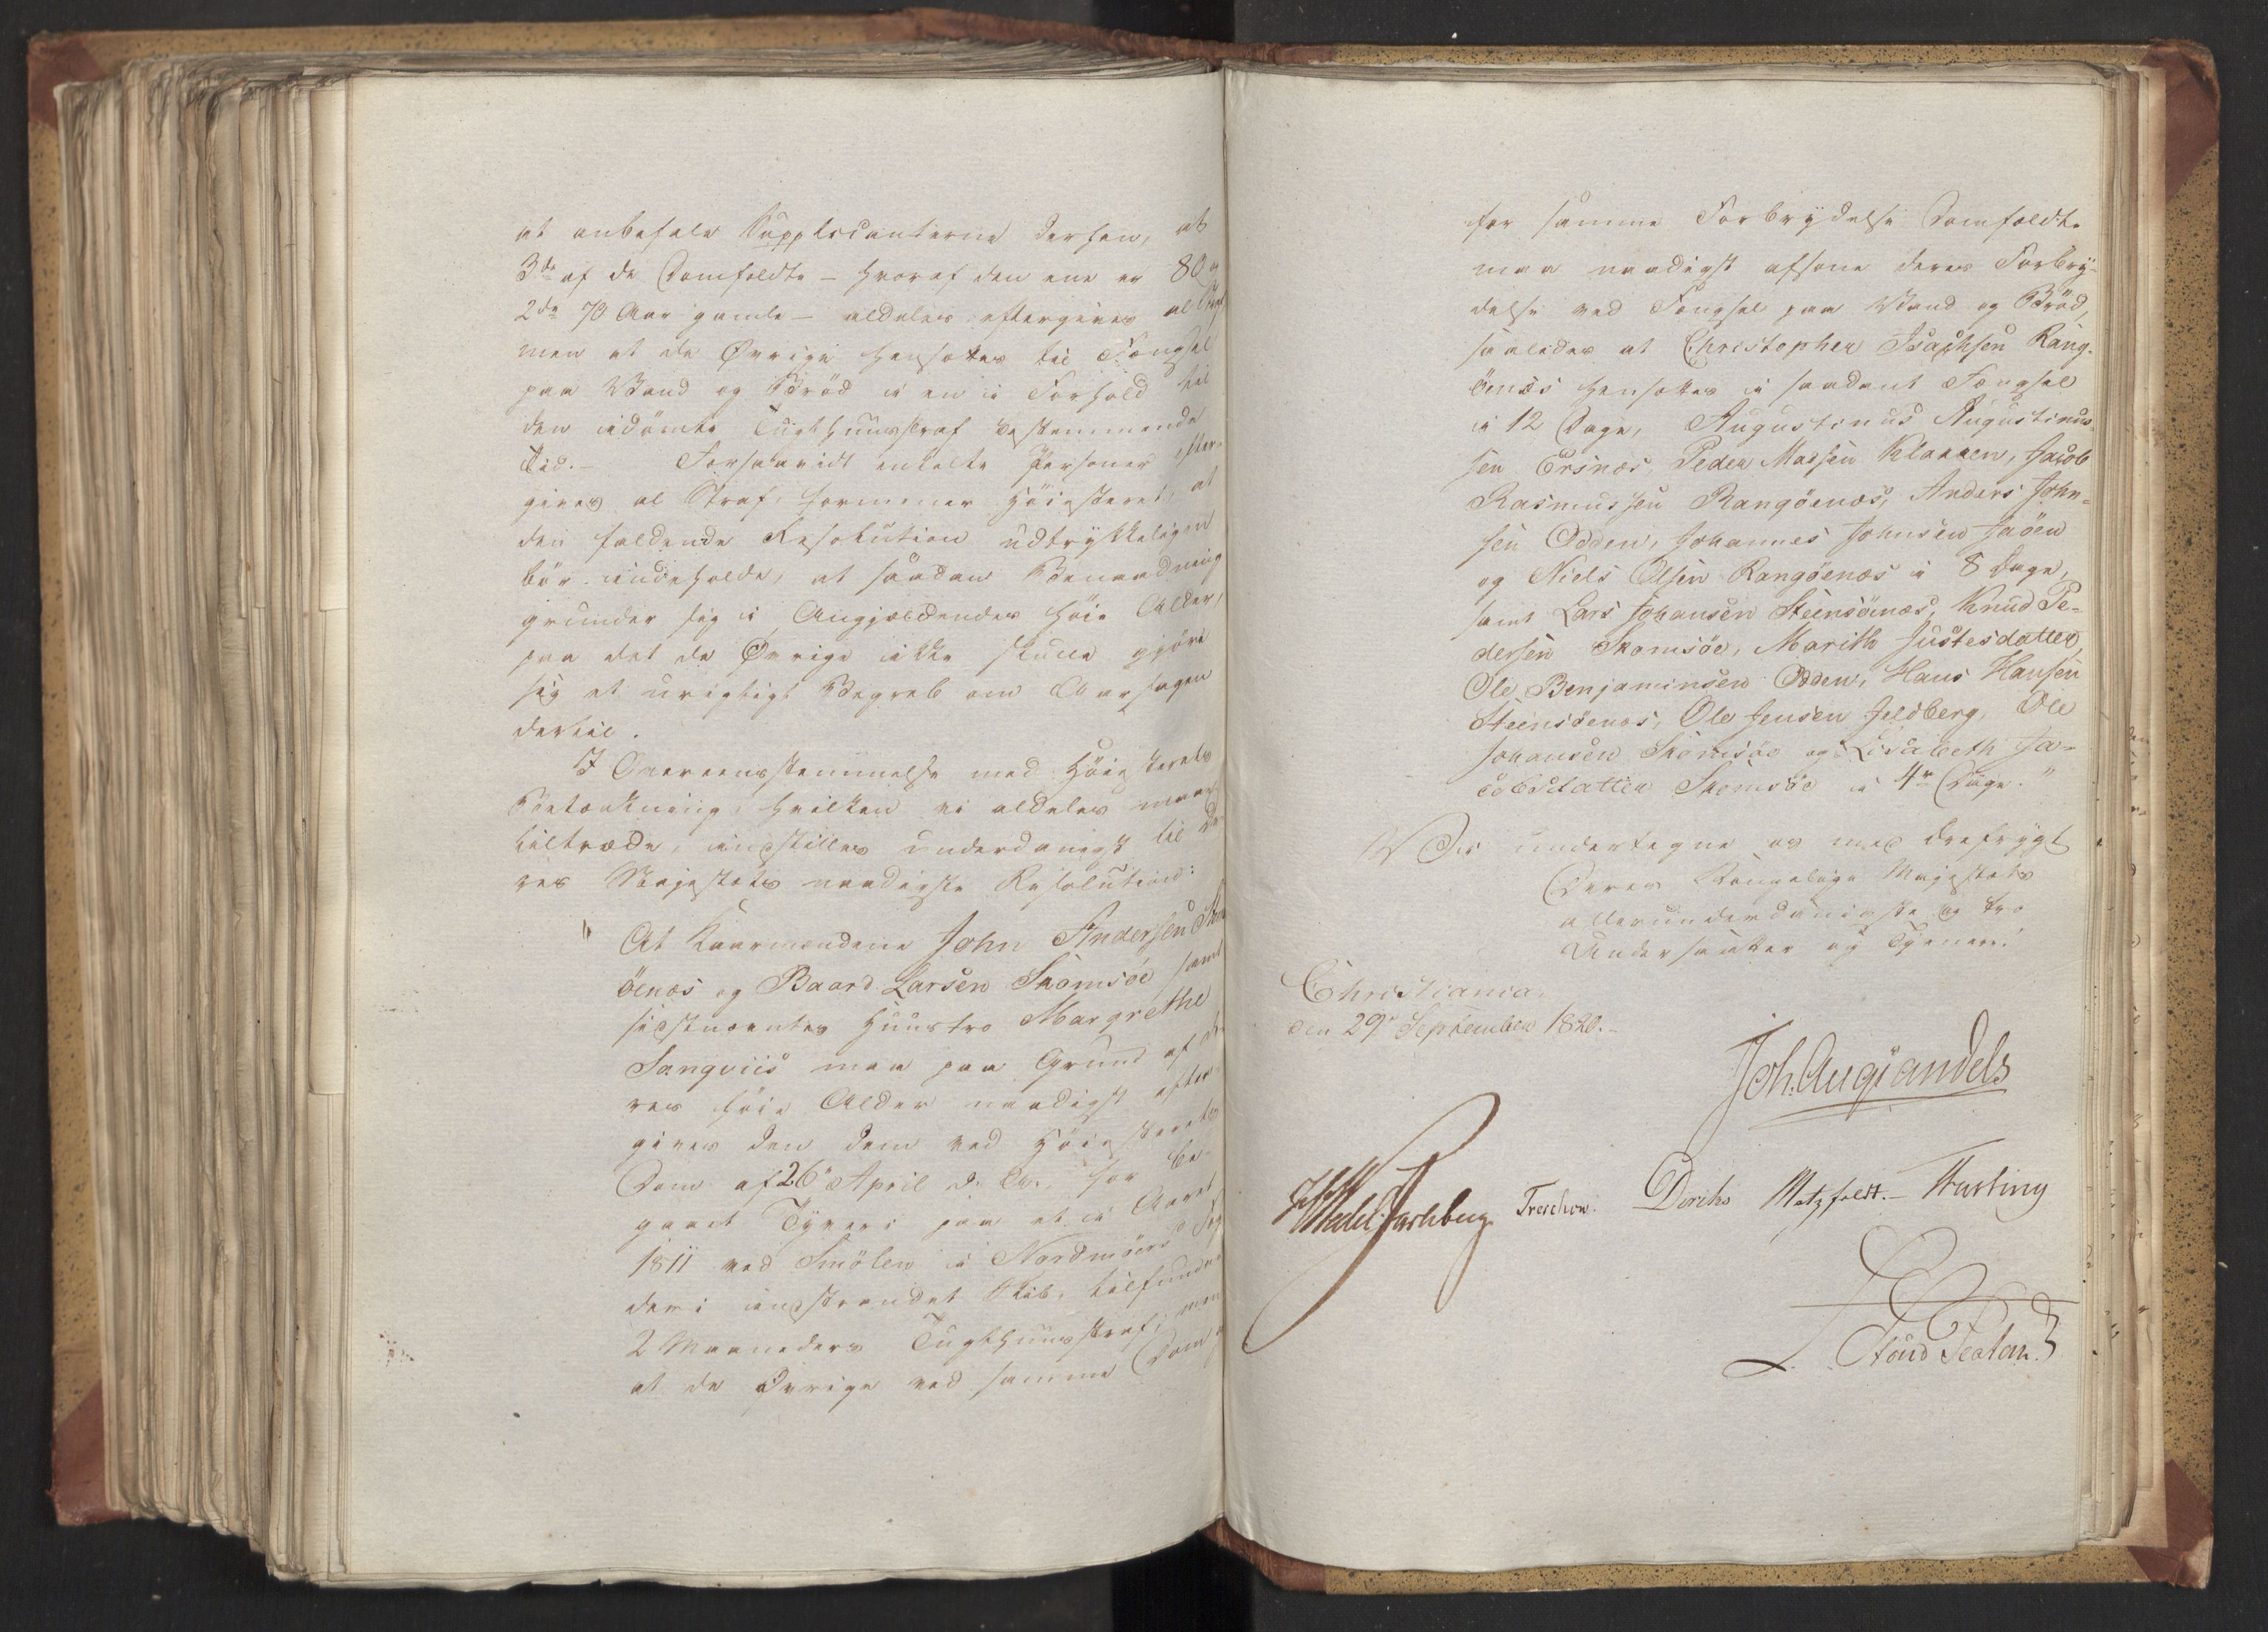 at anbefale Supplicanterne derhen, at
3de af de Domfældte – hvoraf den ene er 80 og
2de 70 Aar gamle – aldeles eftergives al Straf
men at de Øvrige hensættes til Fængsel
paa Vand og Brød i en i Forhold til
den idømte Tugthuusstraf bestemmende
Tid. – Forsaavidt enkelte Personer efter-
gives al Straf, formener Høiesteret, at
den faldende Resolution udtrykkeligen
bør indeholde, at saadan Benaadning
grunder sig i Angjældendes høie Alder,
paa det de Øvrige ikke skulle gjøre
sig et urigtigt Begreb om Aarsagen
dertil.
I Overeensstemmelse med Høiesterets
Betænkning, hvilken vi aldeles maae
tiltræde, indstilles underdanigst til De-
res Majestæts naadigste Resolution:
"At Kaarmændene John Andersen
öenæs og Baard Larsen Skomsöe samt
sidstnævntes Huustro Margrethe
Sangviis maa paa Grund af De-
res høie Alder naadigst efter-
gives den dem ved Høiesterets
Dom af 26de April d. A., for be-
gaaet Tyverie paa et i Aaret
1811 ved Smölen i Nordmöers Fog-
derie indstrandet Skib, tilfundne
2 Maaneders Tugthuusstraf; men
at de Øvrige ved samme Dom
for samme Forbrydelse Domfældte
maa naadigst afsone deres Forbry-
delse ved Fængsel paa Vand og Brød,
saaledes at Christopher Isachsen Rang-
öenæs hensættes i saadant Fængsel
i 12 Dage, Augustinus Augustinus-
sen Ersnæs, Peder Madsen Klakken, Jacob
Rasmussen Rangöenæs, Anders John-
sen Odden, Johannes Johnsen Jaöen
og Niels Olsen Rangöenæs i 8 Dage,
samt Lars Johansen Steensönæs, Knud Pe-
dersen Skomsöe, Marith Justesdatter,
Ole Benjaminsen Odden, Hans Hansen
Steensöenæs, Ole Jensen Jeldberg, Ole
Johansen Skomsöe og Lisabeth Ja-
cobsdatter Skomsöe i 4re Dage."
Vi undertegne os med Ærefrygt
Deres Kongelige Majestæts
allerunderdanigste og tro
Undersaatter og Tjenere!
Christiania,
den 29de September 1820. –
Joh. Aug. Sandels
Wedel Jarlsberg Treschow. Diriks Motzfeldt. – Fasting